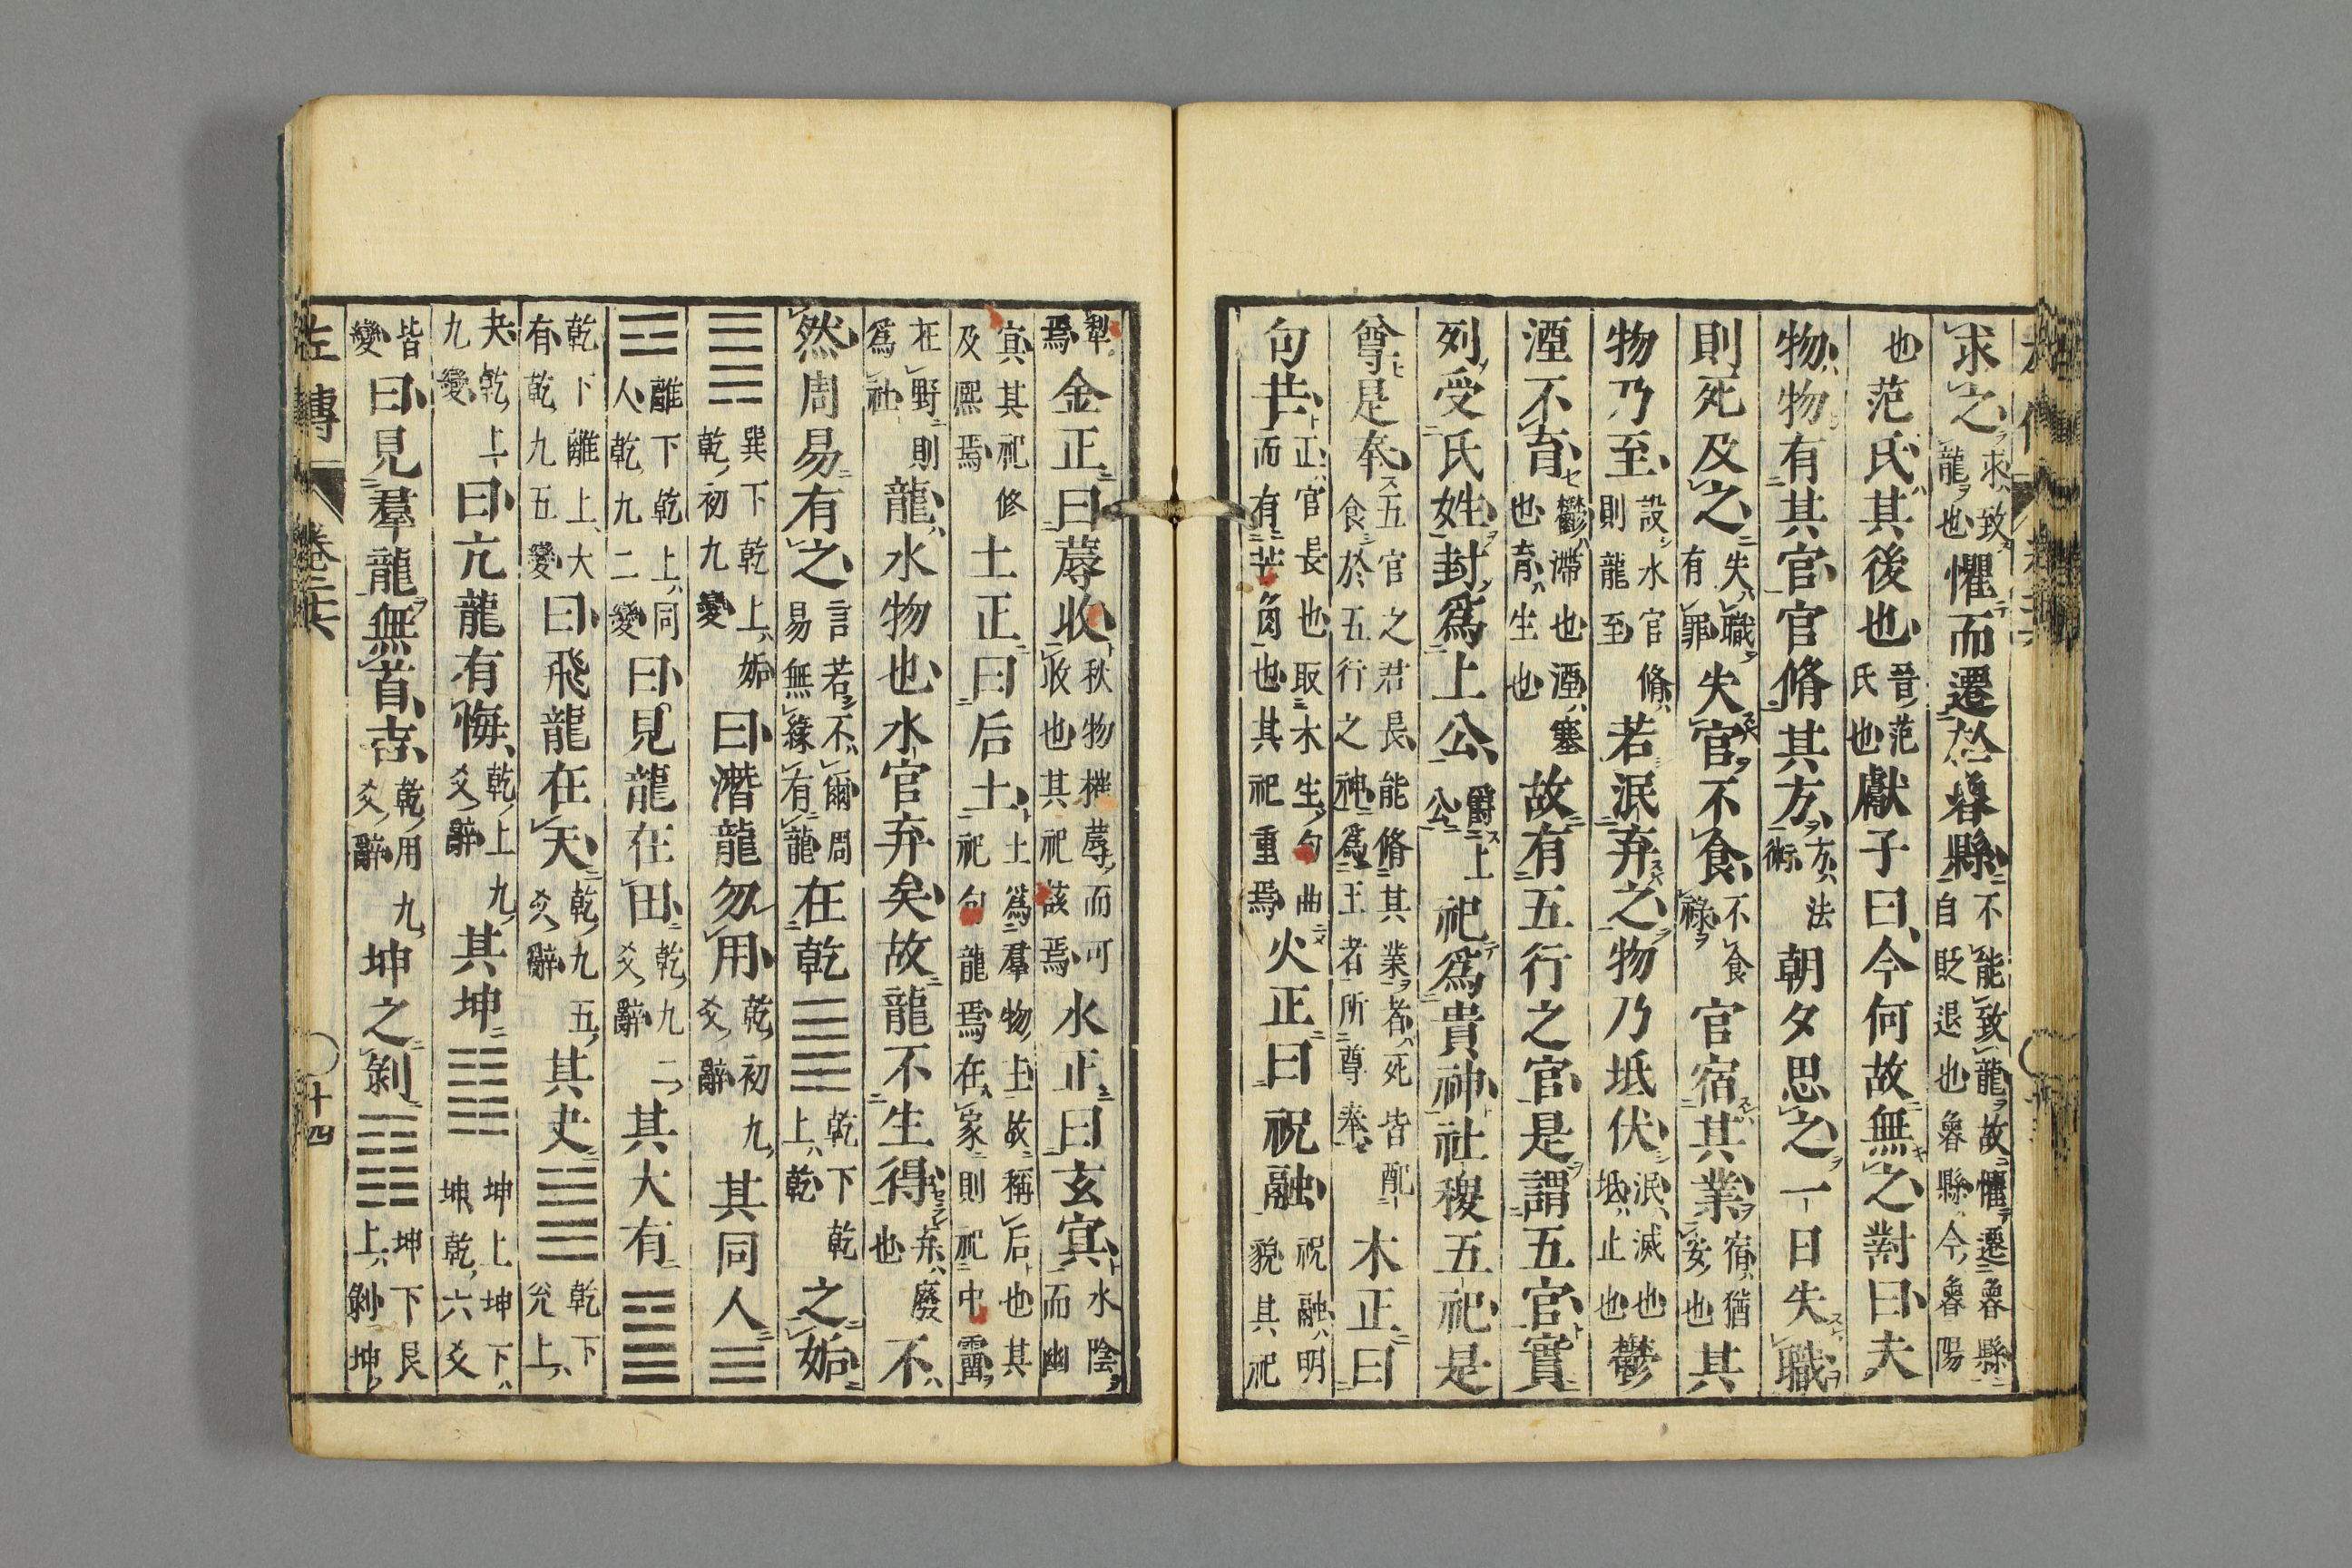 求之求致龍也懼而遷於魯縣不能致龍故懼遷魯縣自貶退也魯縣今魯陽
也范氏其後也晉范氏也獻子曰今何故無之對曰夫
物物有其官官脩其方方法術朝夕思之一日失職
則死及之失職有罪失官不食不食祿官宿其業宿猶安也其
物乃至設水官脩則龍至若泯弃之物乃坻伏泯滅也坻止也鬱
湮不育鬱滯也湮塞也育生也故有五行之官是謂五官實
列受氏姓封為上公爵上公祀為貴神社稷五祀是
尊是奉五官之君長能脩其業者死皆配食於五行之神為王者所尊奉木正曰
句芒正官長也取木生句曲而有芒角也其祀重焉火正曰祝融祝融明貌其祀
犁焉金正曰蓐收秋物摧蓐而可收也其祀該焉水正曰玄冥水陰而幽
冥其祀修及熙焉土正曰后土土為羣物主故稱后也其祀句龍焉在家則祀中霤
在野則為社龍水物也水官弃矣故龍不生得弃廢也不
然周易有之言若不爾周易無緣有龍在乾䷀乾下乾上乾之姤
䷫巽下乾上姤乾初九變曰潛龍勿用乾初九爻辭其同人
䷌離下乾上同人乾九二變曰見龍在田乾九二爻辭其大有䷍
乾下離上大有乾九五變曰飛龍在天乾九五爻辭其夬䷪乾下兊上
夬乾上九變曰亢龍有悔乾上九爻辭其坤䷁坤上坤下坤乾六爻
皆變曰見羣龍無首吉乾用九爻辭坤之剝䷖坤下艮上剝坤
左傳　卷二十六　十四